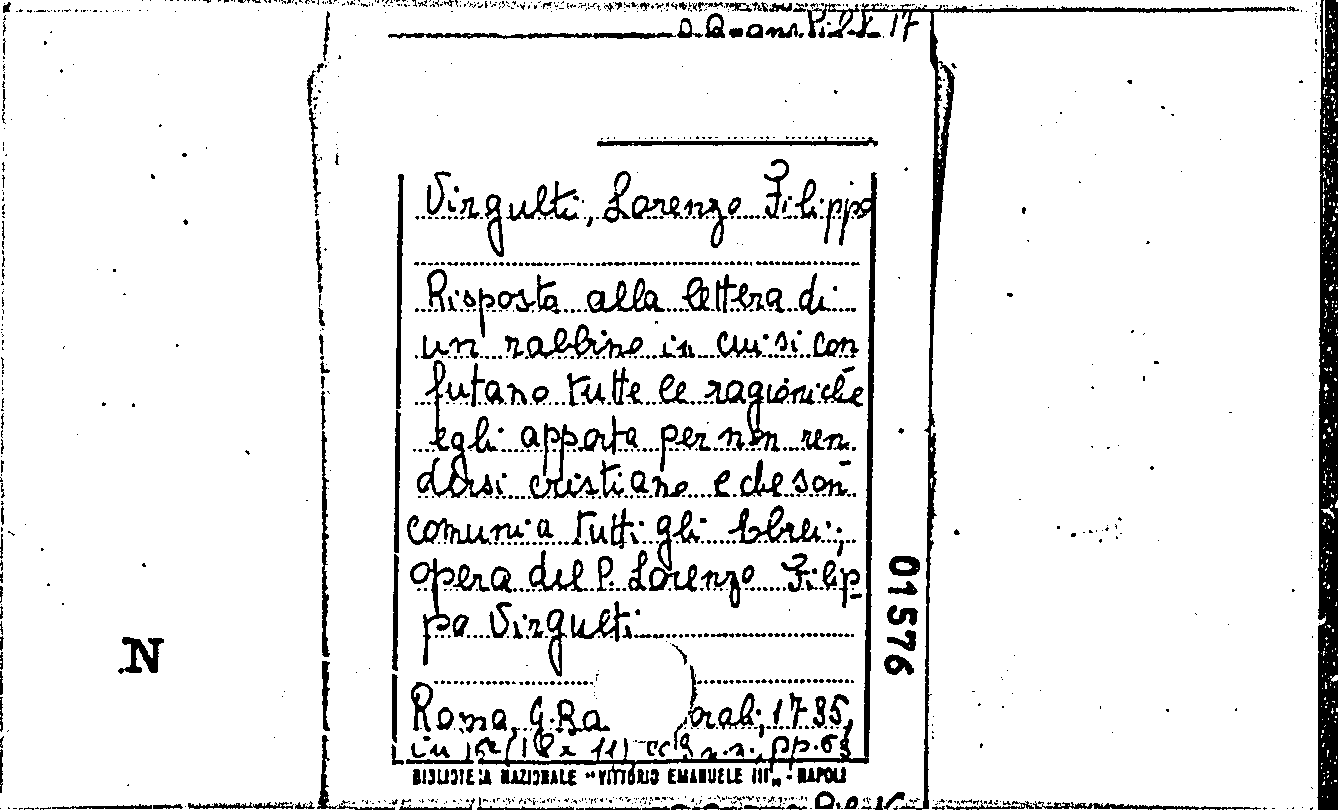 17
Virgulti, Lorenzo Filippo
Risposta alla lettera di
un rabbino in cui si con
futano tutte le ragioni che
egli apporta per non ren
dersi cristiano e che son
comuni a tutti gli Ebrei;
opera del P. Lorenzo Filip
po Virgulti
Roma, G. Ba 1735,
in
01576
N
BIBLIOTECA NAZIONALE "VITTORIO EMANUELE III" - NAPOLI